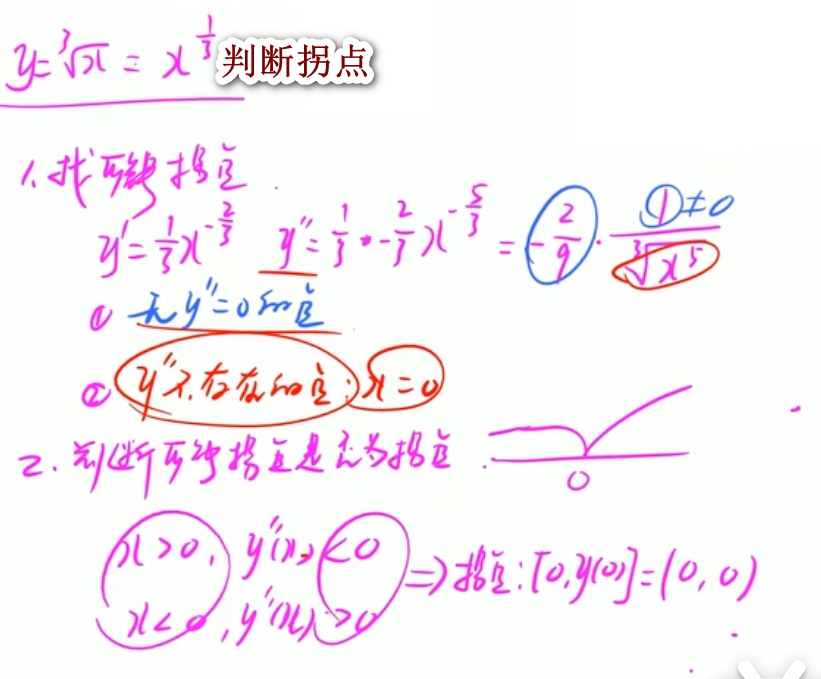 y=∛x = x^(1/3) 判断拐点
1. 找可能拐点
y'=1/3 x^(-2/3) y''=1/3·-2/3 x^(-5/3) = -2/9 · 1/∛(x^5) 1≠0
① 无y''=0的点
② y''不存在的点:x=0
2. 判断可能拐点是否为拐点
0
x>0, y''(x)<0
x<0, y''(x)>0 ⇒拐点:[0,y(0)]=(0,0)